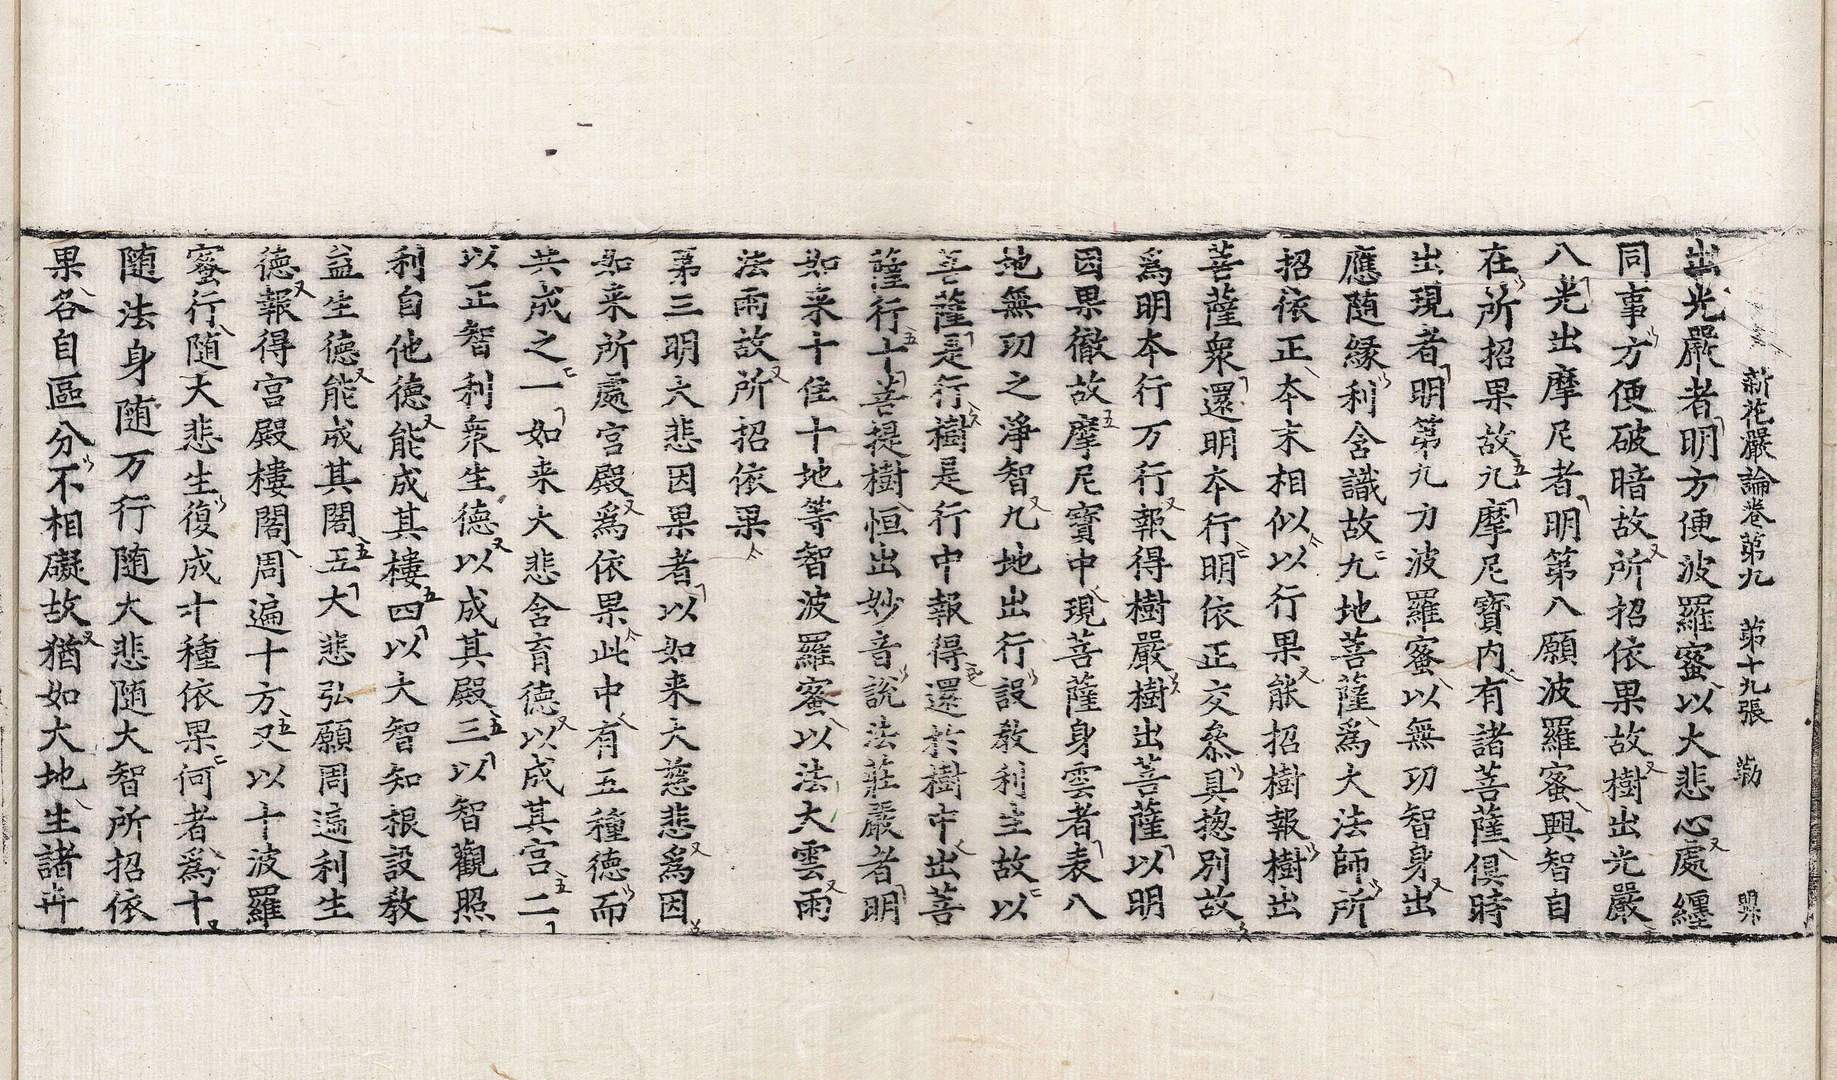 新花嚴論卷第九　第十九張　勒
出光嚴者明方便波羅蜜以大悲心處纏
同事方便破暗故所招依果故樹出光嚴
八光出摩尼者明第八願波羅蜜興智自
在所招果故九摩尼寶內有諸菩薩俱時
出現者明第九力波羅蜜以無功智身出
應随緣利含識故九地菩薩爲大法師所
招依正本末相似以行果能招樹報樹出
菩薩衆還明本行明依正交叅具揔別故
爲明本行万行報得樹嚴樹出菩薩以明
因果徹故摩尼寶中現菩薩身雲者表八
地無功之淨智九地出行設教利生故以
菩薩是行樹是行中報得還於樹中出菩
薩行十菩提樹恒出妙音說法莊嚴者明
如来十住十地等智波羅蜜以法大雲雨
法雨故所招依果
第三明大悲因果者以如来大慈悲爲因
如来所處宮殿爲依果此中有五種德而
共成之一如来大悲含育德以成其宮二
以正智利衆生德以成其殿三以智觀照
利自他德能成其樓四以大智知根設教
益生德能成其閣五大悲弘願周遍利生
德報得宮殿樓閣周遍十方又以十波羅
蜜行随大悲生復成十種依果何者爲十
随法身随万行随大悲随大智所招依
果各自區分不相礙故猶如大地生諸卉